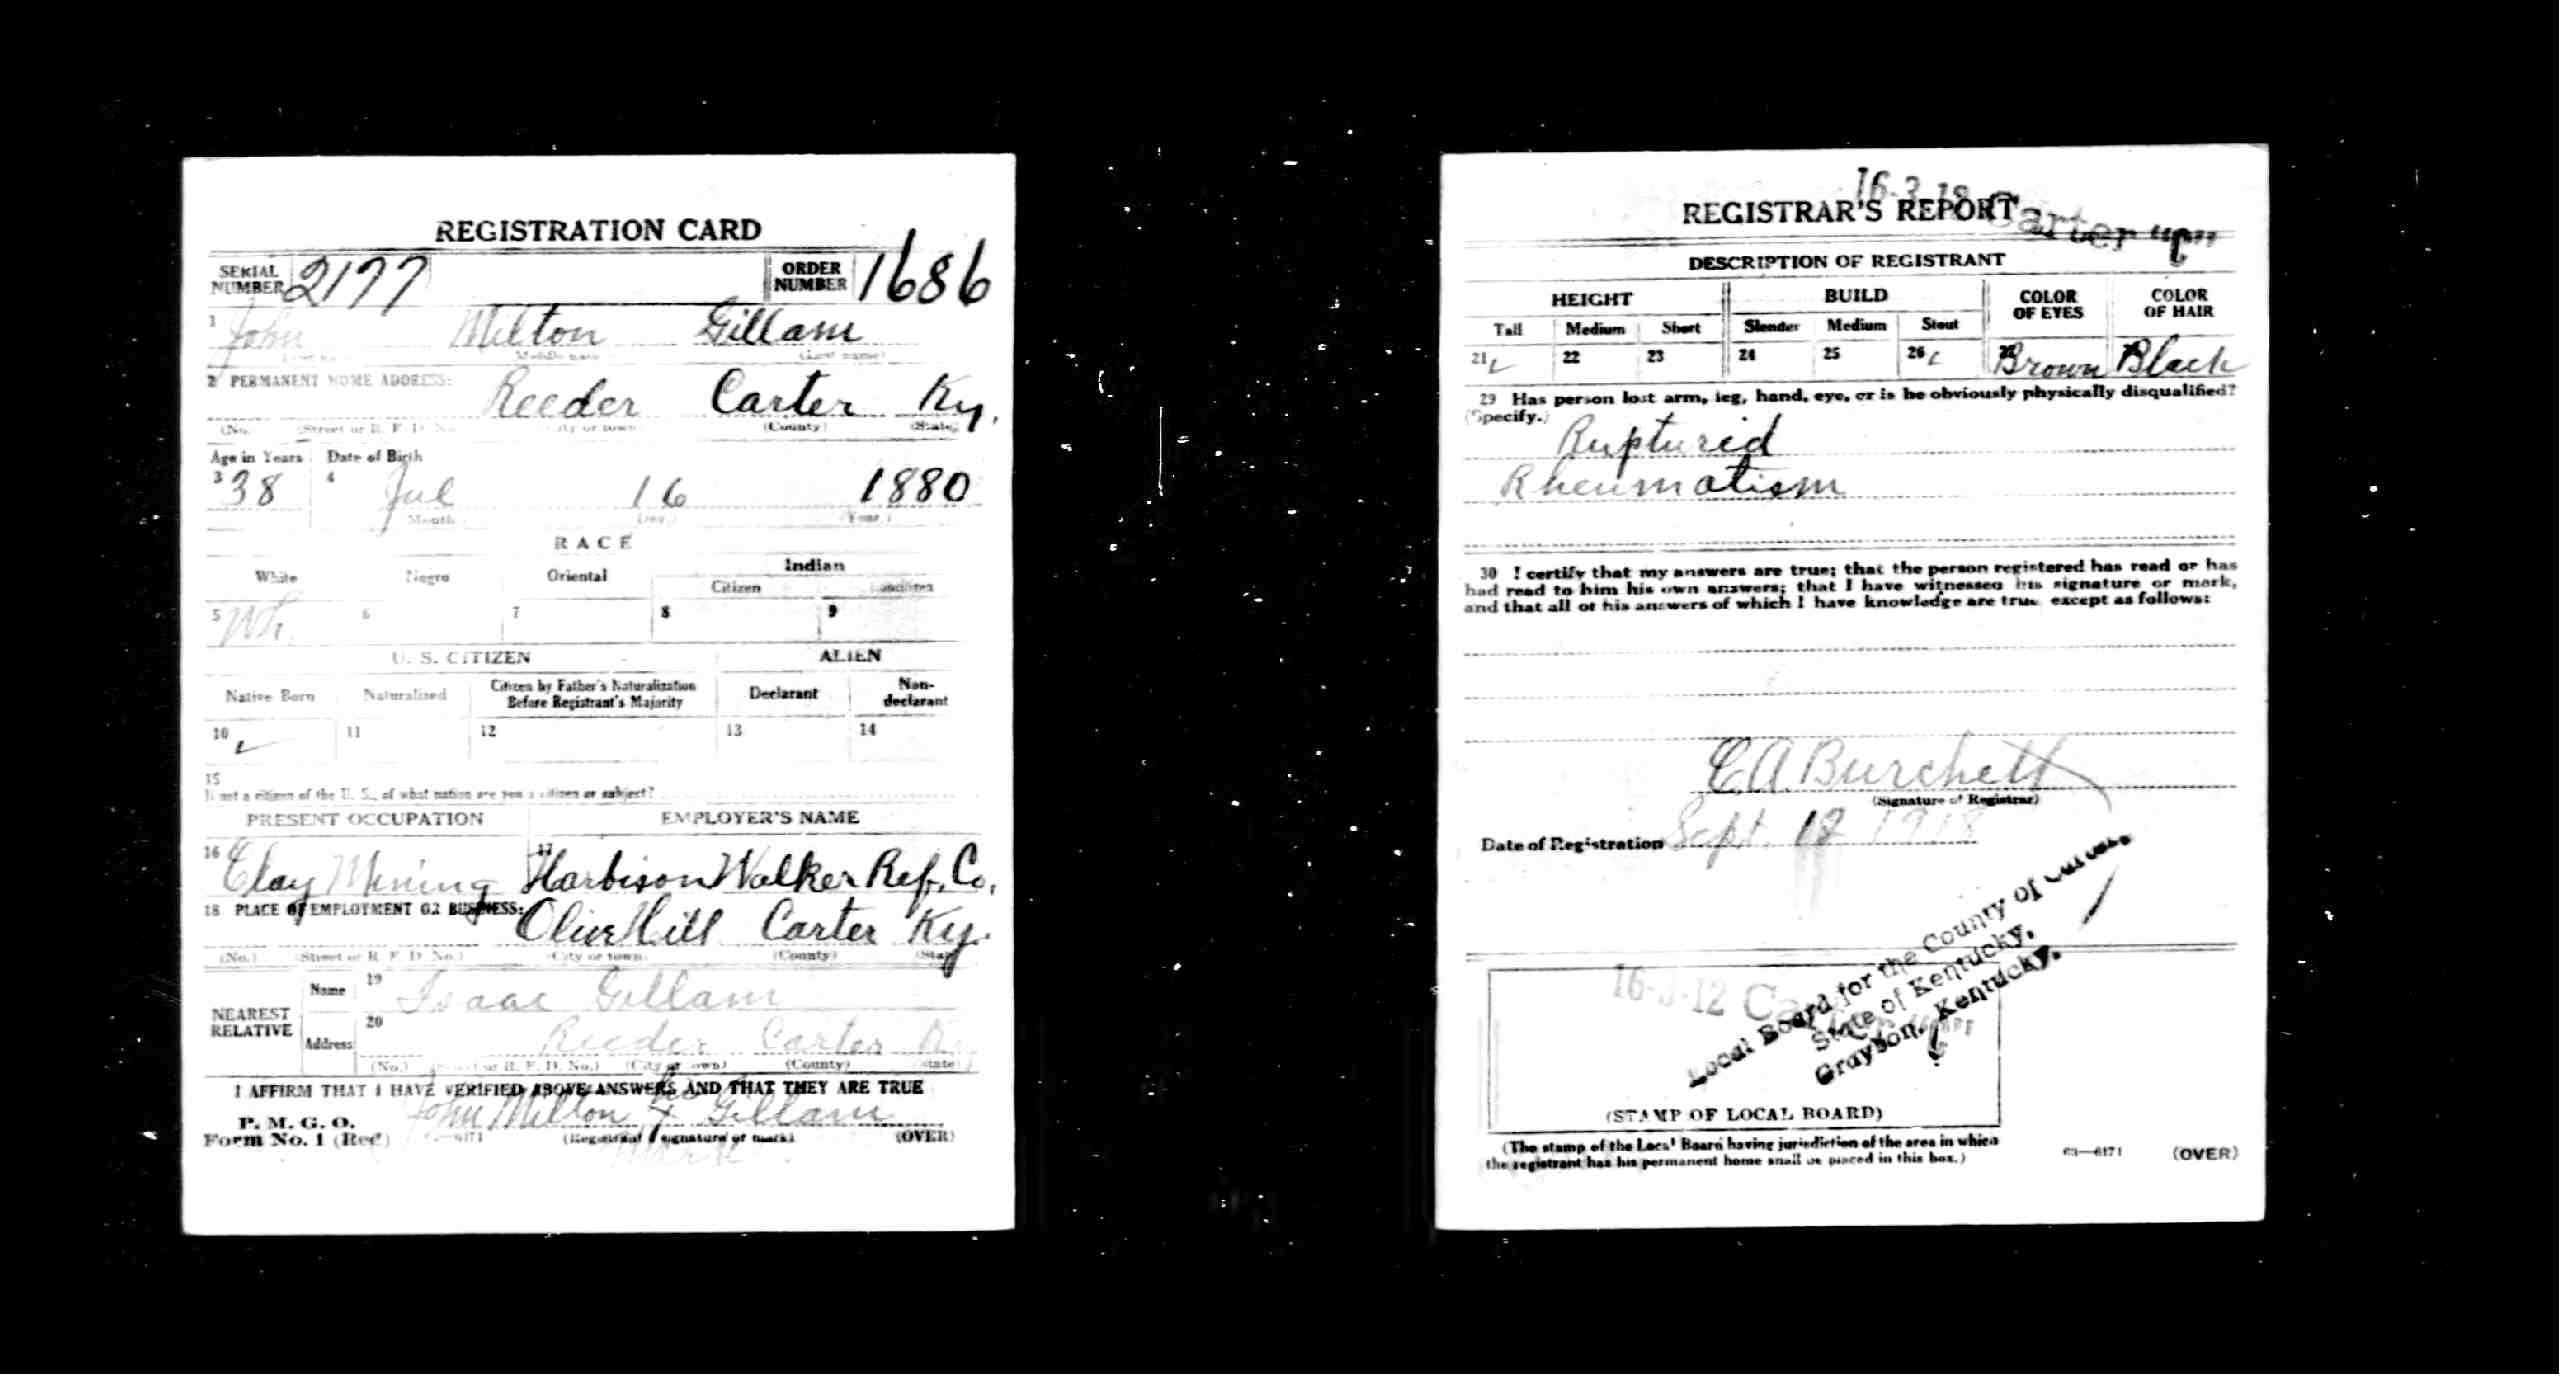 REGISTRATION CARD
SERIAL NUMBER 2177 ORDER NUMBER 1686
1 John Milton Gillam
Middle name (Last name)
2 PERMANENT HOME ADDRESS: Reeder Carter Ky.
(No. (Street or R. F. D. No. City or town (County) (State)
Age in Years Date of Birth
3 38 4 Jul 16 1880
Month (Day.) (Year.)
RACE
White Negro Oriental Indian
Citizen
5 Wh. 6 7 8 9
U. S. CITIZEN ALIEN
Native Born Naturalized Citizen by Father's Naturalization Before Registrant's Majority Declarant Non-declarant
10 ✓ 11 12 13 14
15
If not a citizen of the U. S., of what nation are you a citizen or subject?
PRESENT OCCUPATION EMPLOYER'S NAME
16 Clay Mining 17 Harbison Walker Ref. Co.
18 PLACE OF EMPLOYMENT OR BUSINESS: Olive Hill Carter Ky.
(No.) (Street or R. F. D. No.) (City or town) (County) (State)
NEAREST RELATIVE Name 19 Isaac Gillam
Address 20 Reeder Carter Ky
(No.) (Street or R. F. D. No.) (City or town) (County) (State)
I AFFIRM THAT I HAVE VERIFIED ABOVE ANSWERS AND THAT THEY ARE TRUE
P. M. G. O.
Form No. 1 (Red) John Milton his X Gillam
(Registrant's signature or mark) (OVER)
mark
16-3-12 Carter
REGISTRAR'S REPORT
DESCRIPTION OF REGISTRANT
HEIGHT BUILD COLOR OF EYES COLOR OF HAIR
Tall Medium Short Slender Medium Stout
21 ✓ 22 23 24 25 26 ✓ Brown Black
29 Has person lost arm, leg, hand, eye, or is he obviously physically disqualified?
(Specify.)
Rupturid
Rheumatism
30 I certify that my answers are true; that the person registered has read or has
had read to him his own answers; that I have witnessed his signature or mark,
and that all of his answers of which I have knowledge are true, except as follows:
Burchett
(Signature of Registrar)
Date of Registration Sept. 12 1918
16-3-12
Local Board for the County of Carter,
State of Kentucky,
Grayson, Kentucky.
(STAMP OF LOCAL BOARD)
(The stamp of the Local Board having jurisdiction of the area in which
the registrant has his permanent home shall be placed in this box.)
63—6171 (OVER)